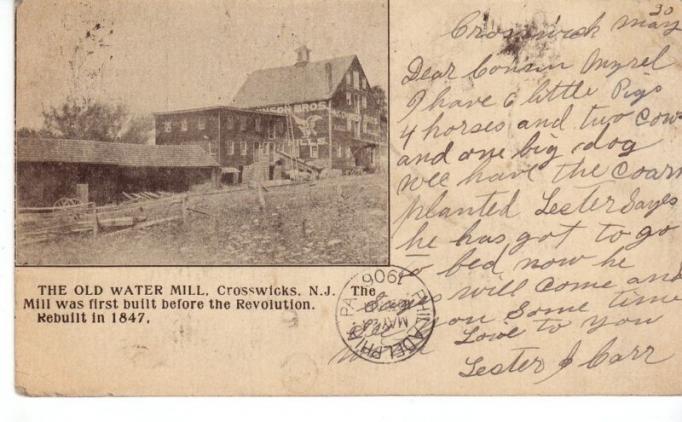 30
Crosswick May
Dear Cousin
I have 6 little Pigs
4 horses and two Cows
and one big dog
wee have the Coarn
planted Lester Sayes
he has got to go
to bed now he
Sayes will Come and
See you Some time
Love to You
Lester J Carr
NSON BROS.
THE OLD WATER MILL, Crosswicks, N.J. The
Mill was first built before the Revolution.
Rebuilt in 1847.
PHILADELPHIA PA. 1906
MAY